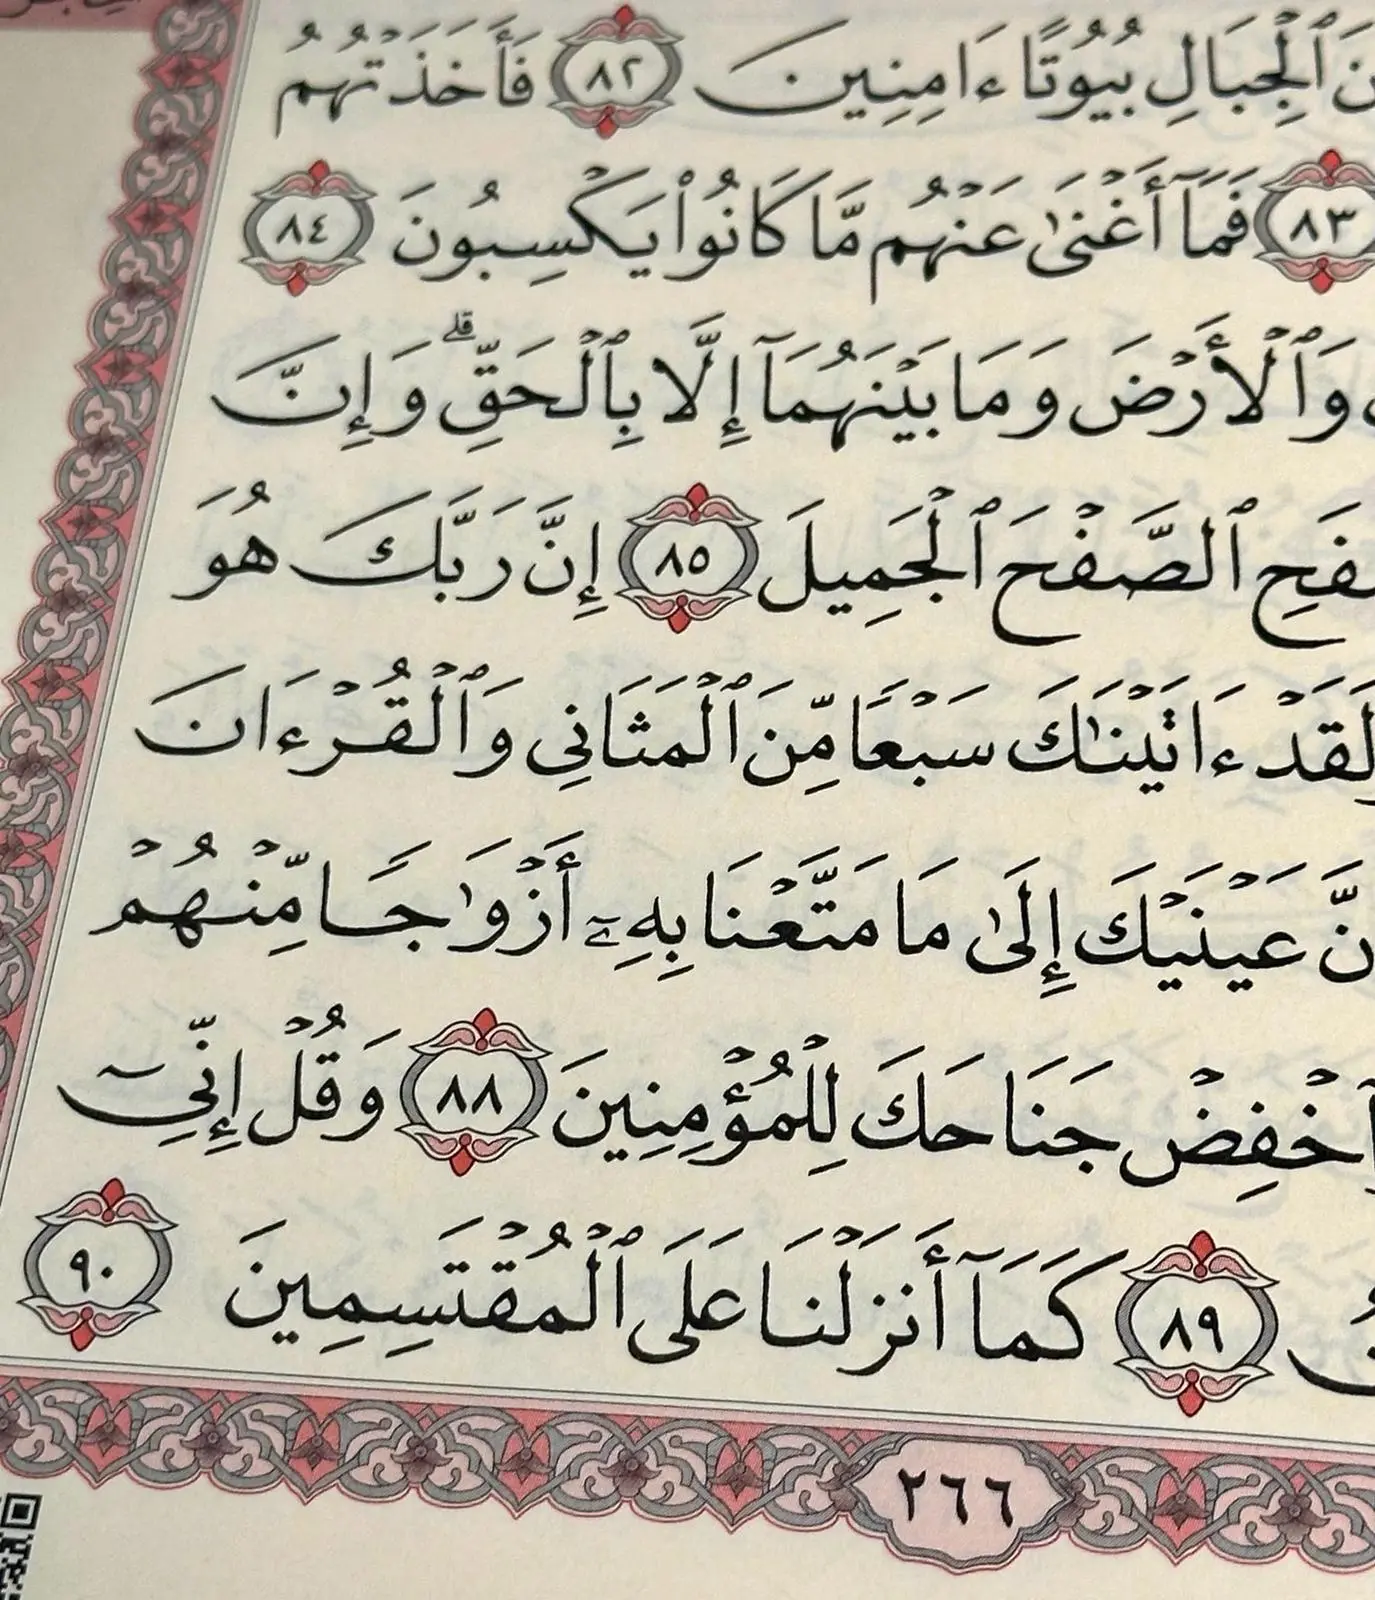 ٱلۡجِبَالِ بُيُوتًا ءَامِنِينَ ٨٢ فَأَخَذَتۡهُمُ
٨٣ فَمَآ أَغۡنَىٰ عَنۡهُم مَّا كَانُواْ يَكۡسِبُونَ ٨٤
وَٱلۡأَرۡضَ وَمَا بَيۡنَهُمَآ إِلَّا بِٱلۡحَقِّۗ وَإِنَّ
ٱلصَّفۡحَ ٱلۡجَمِيلَ ٨٥ إِنَّ رَبَّكَ هُوَ
لَقَدۡ ءَاتَيۡنَٰكَ سَبۡعٗا مِّنَ ٱلۡمَثَانِي وَٱلۡقُرۡءَانَ
عَيۡنَيۡكَ إِلَىٰ مَا مَتَّعۡنَا بِهِۦٓ أَزۡوَٰجٗا مِّنۡهُمۡ
ٱخۡفِضۡ جَنَاحَكَ لِلۡمُؤۡمِنِينَ ٨٨ وَقُلۡ إِنِّيٓ
٨٩ كَمَآ أَنزَلۡنَا عَلَى ٱلۡمُقۡتَسِمِينَ ٩٠
٢٦٦